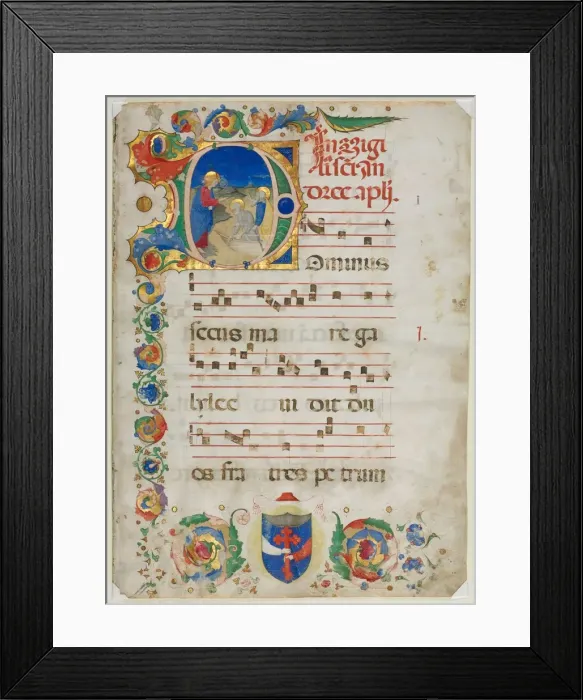 In uigi
lia sci An
dree apli.
Dominus
secus ma re ga
lylee ui dit du
os fra tres pe trum